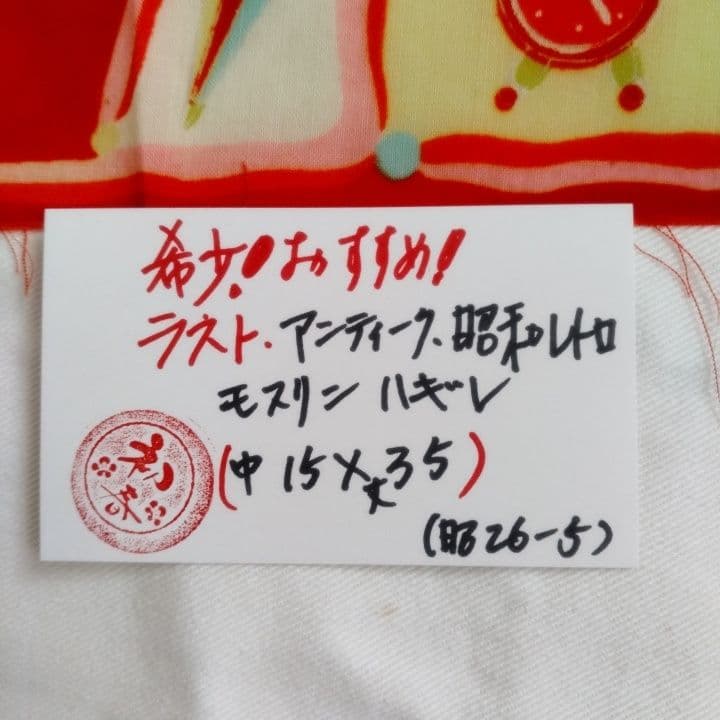 希少!おすすめ!
ラスト.アンティーク.昭和レトロ
モスリン ハギレ
(巾15×丈35)
(昭26-5)
初春